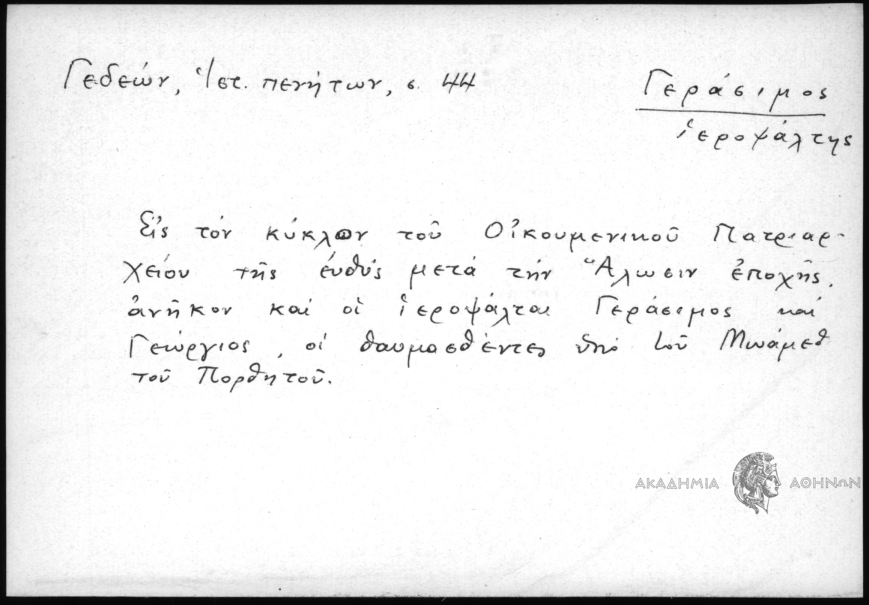 Γεδεών, Ἱστ. πενήτων, σ. 44
Γεράσιμος
ἱεροψάλτης
Εἰς τόν κύκλον τοῦ Οἰκουμενικοῦ Πατριαρ-
χείου τῆς εὐθύς μετά τήν Ἅλωσιν ἐποχῆς.
ἀνῆκον καί οἱ ἱεροψάλται Γεράσιμος καί
Γεώργιος, οἱ θαυμασθέντες ὑπό τοῦ Μωάμεθ
τοῦ Πορθητοῦ.
ΑΚΑΔΗΜΙΑ ΑΘΗΝΩΝ